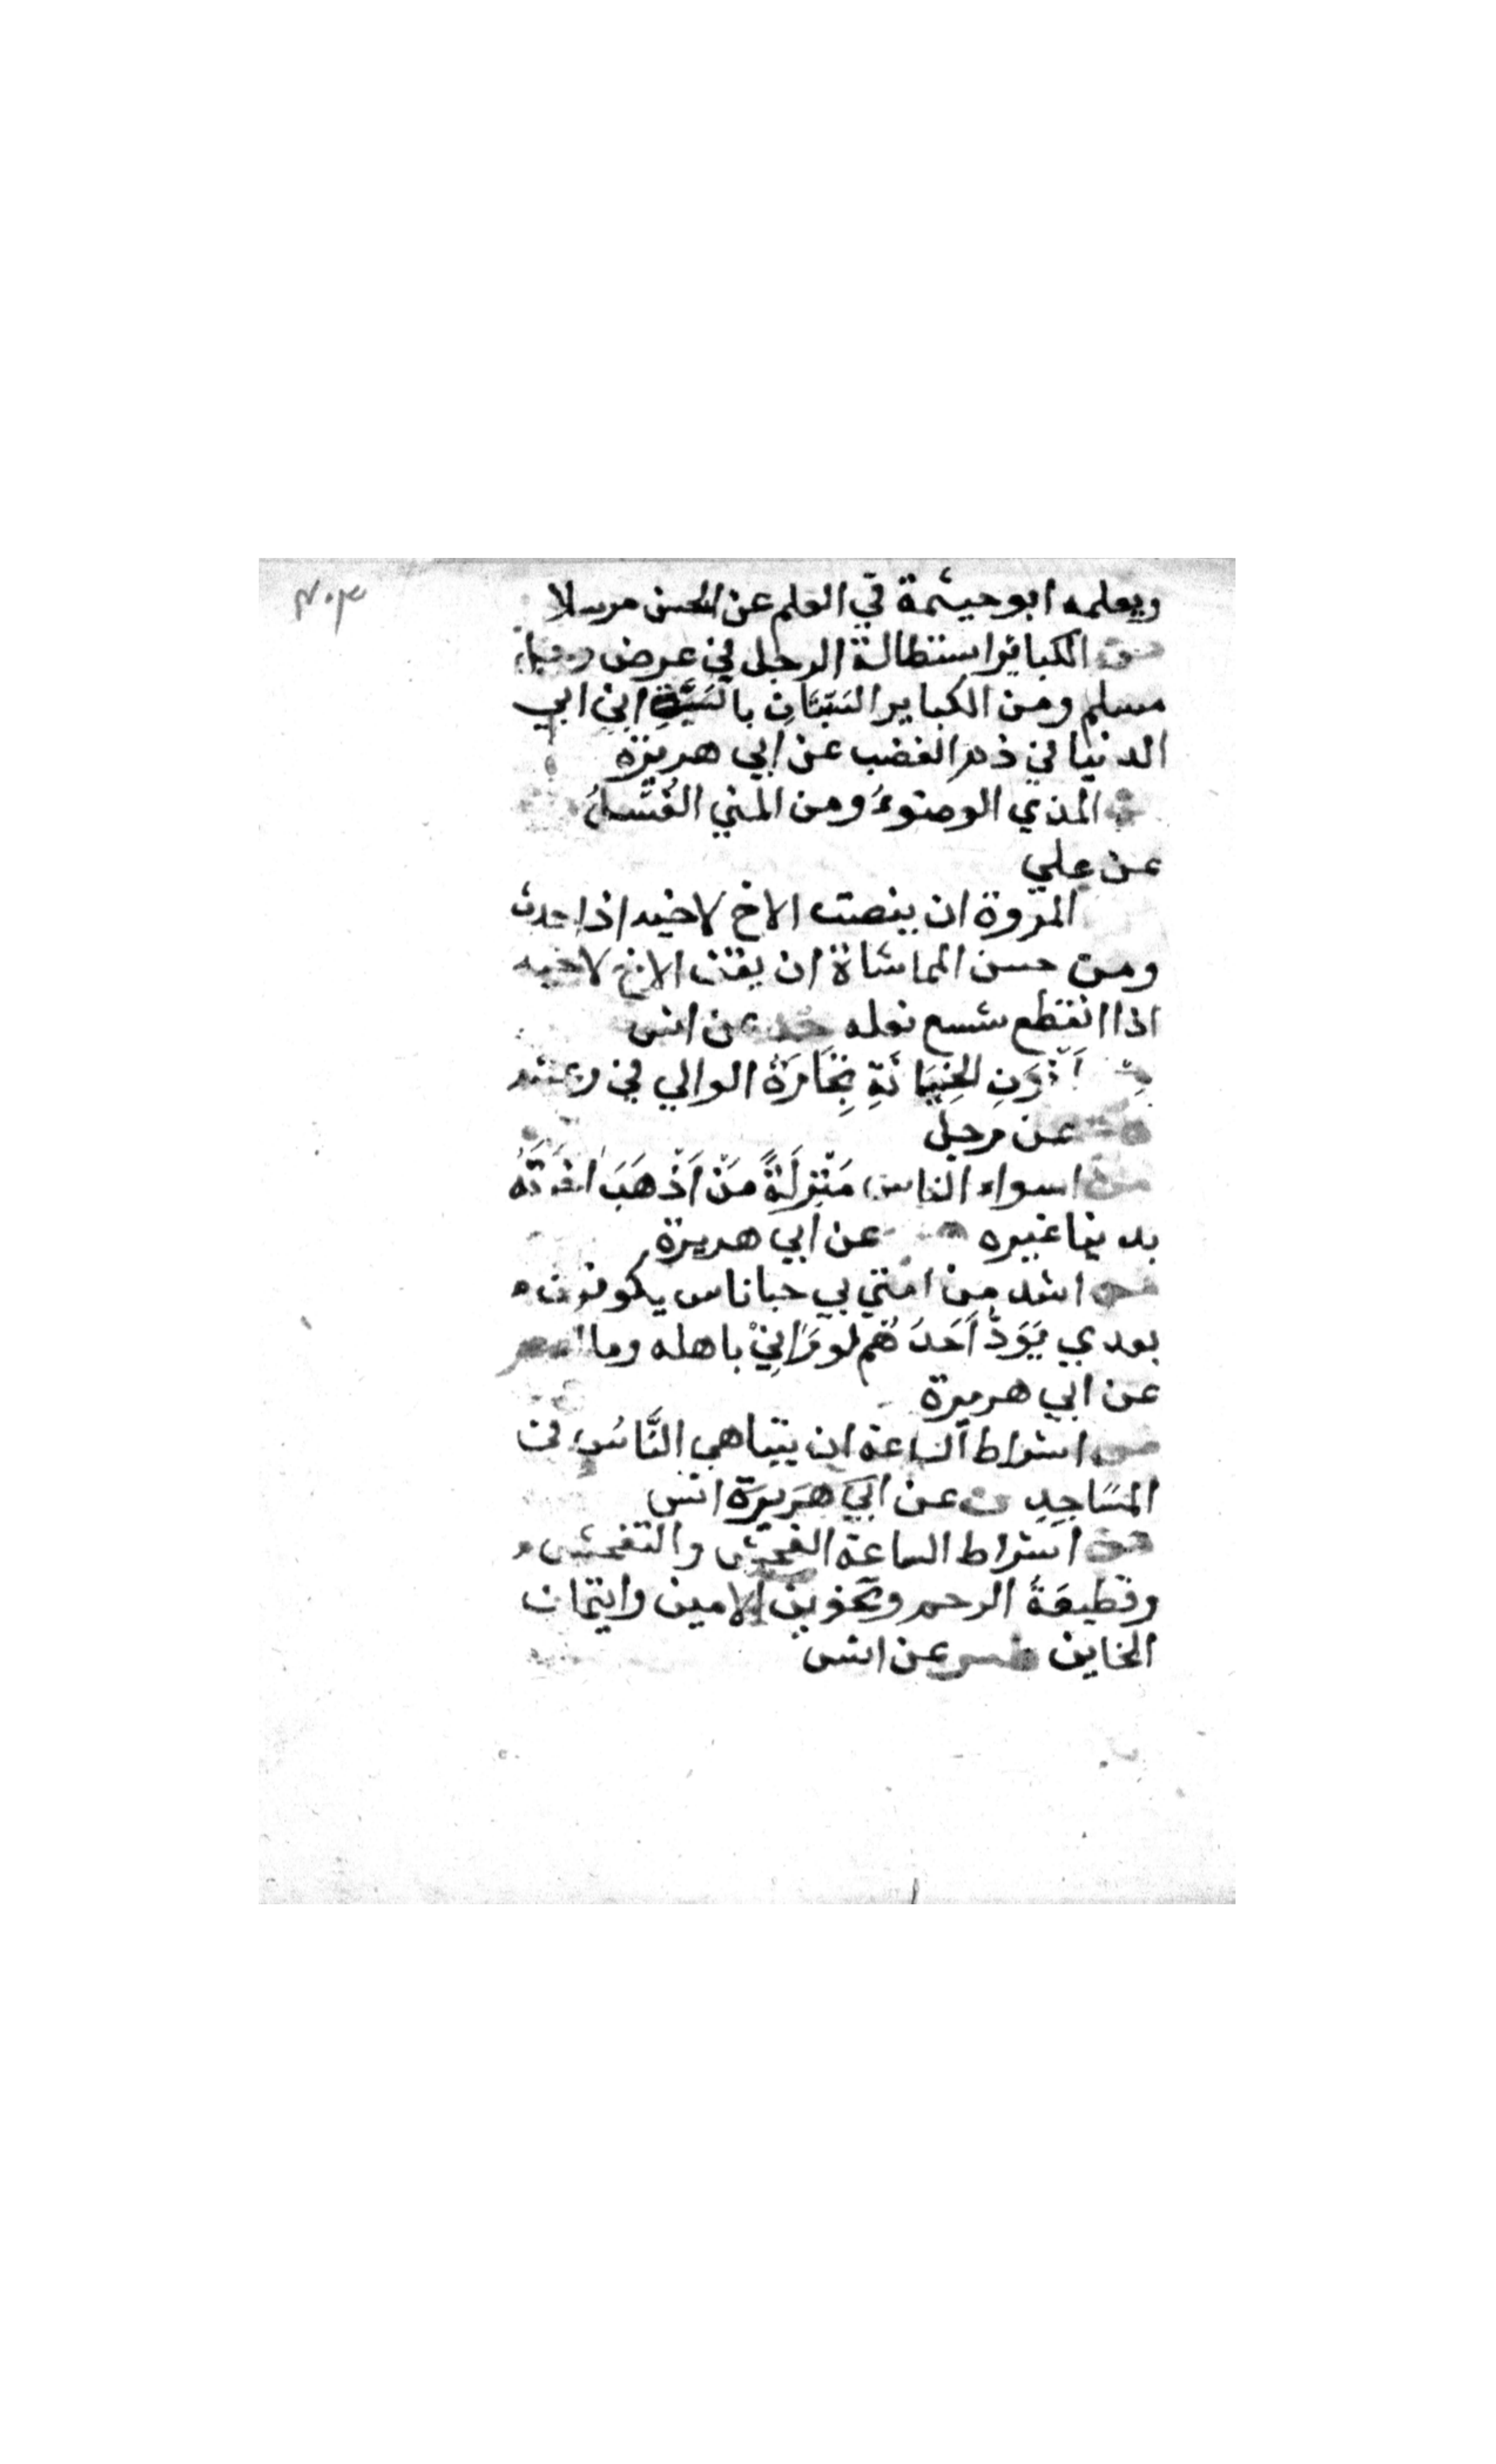 ٣٠٣
ويعلمه ابو حيثمة في العلم عن الحسن مرسلا
من الكبائر استطالة الرجل في عرض رجل
مسلم ومن الكبايرالسَبَّتَانِ بالسَبَّةِ ابن ابي
الدنيا في ذم الغضب عن ابي هريرة
المذي الوضوءُ ومن المني الغُسْلُ
عن علي
المروة ان ينصت الاخ لاخيه اذا حدث
ومن حسن المماشاة ان يقف الاخ لاخيه
اذا انقطع شسع نعله عن انس
اَخْوَنِ الخِيَانَةِ تِجَارَةُ الوالي في رعيته
عن رجل
من اسواء الناس مَنْزِلَةً مَنْ اَذْهَبَ اخرتهُ
بدنيا غيره عن ابي هريرة
من اشد امتي بي حبا ناس يكونون
بعدي يَوَدُّ اَحَدُهُم لو رَانِيْ باهله وما
عن ابي هريرة
من اشراط الساعة ان يتباهي النَّاسُ في
المسَاجِدِ ن عن ابي هَرَيرَة انس
من اشراط الساعة الفحش والتفحش
وقطيعَةُ الرحم وتخوين الامين وايتمان
الخاين طس عن انس